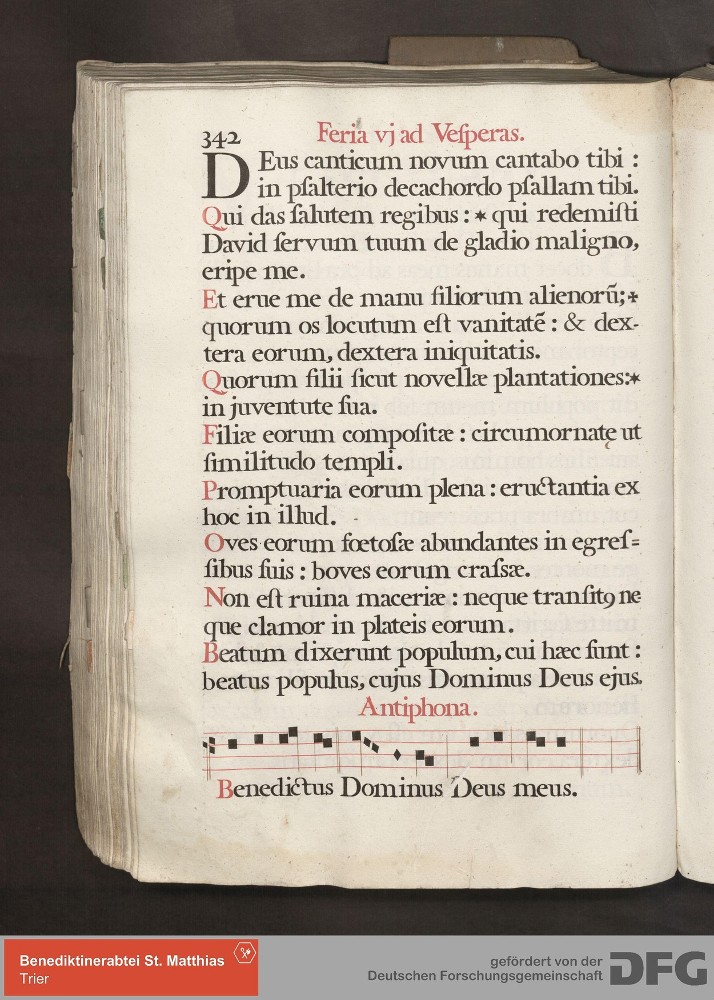 342 Feria vj ad Veſperas.
DEus canticum novum cantabo tibi :
in pſalterio decachordo pſallam tibi.
Qui das ſalutem regibus : * qui redemiſti
David ſervum tuum de gladio maligno,
eripe me.
Et erue me de manu filiorum alienorũ; +
quorum os locutum eſt vanitatẽ : & dex-
tera eorum, dextera iniquitatis.
Quorum filii ſicut novellæ plantationes: *
in juventute ſua.
Filiæ eorum compoſitæ : circumornatę ut
ſimilitudo templi.
Promptuaria eorum plena : eructantia ex
hoc in illud.
Oves eorum fœtoſæ abundantes in egreſ=
ſibus ſuis : boves eorum craſsæ.
Non eſt ruina maceriæ : neque tranſitꝯ ne
que clamor in plateis eorum.
Beatum dixerunt populum, cui hæc ſunt :
beatus populus, cujus Dominus Deus ejus.
Antiphona.
Benedictus Dominus Deus meus.
Benediktinerabtei St. Matthias
Trier
gefördert von der
Deutschen Forschungsgemeinschaft
DFG